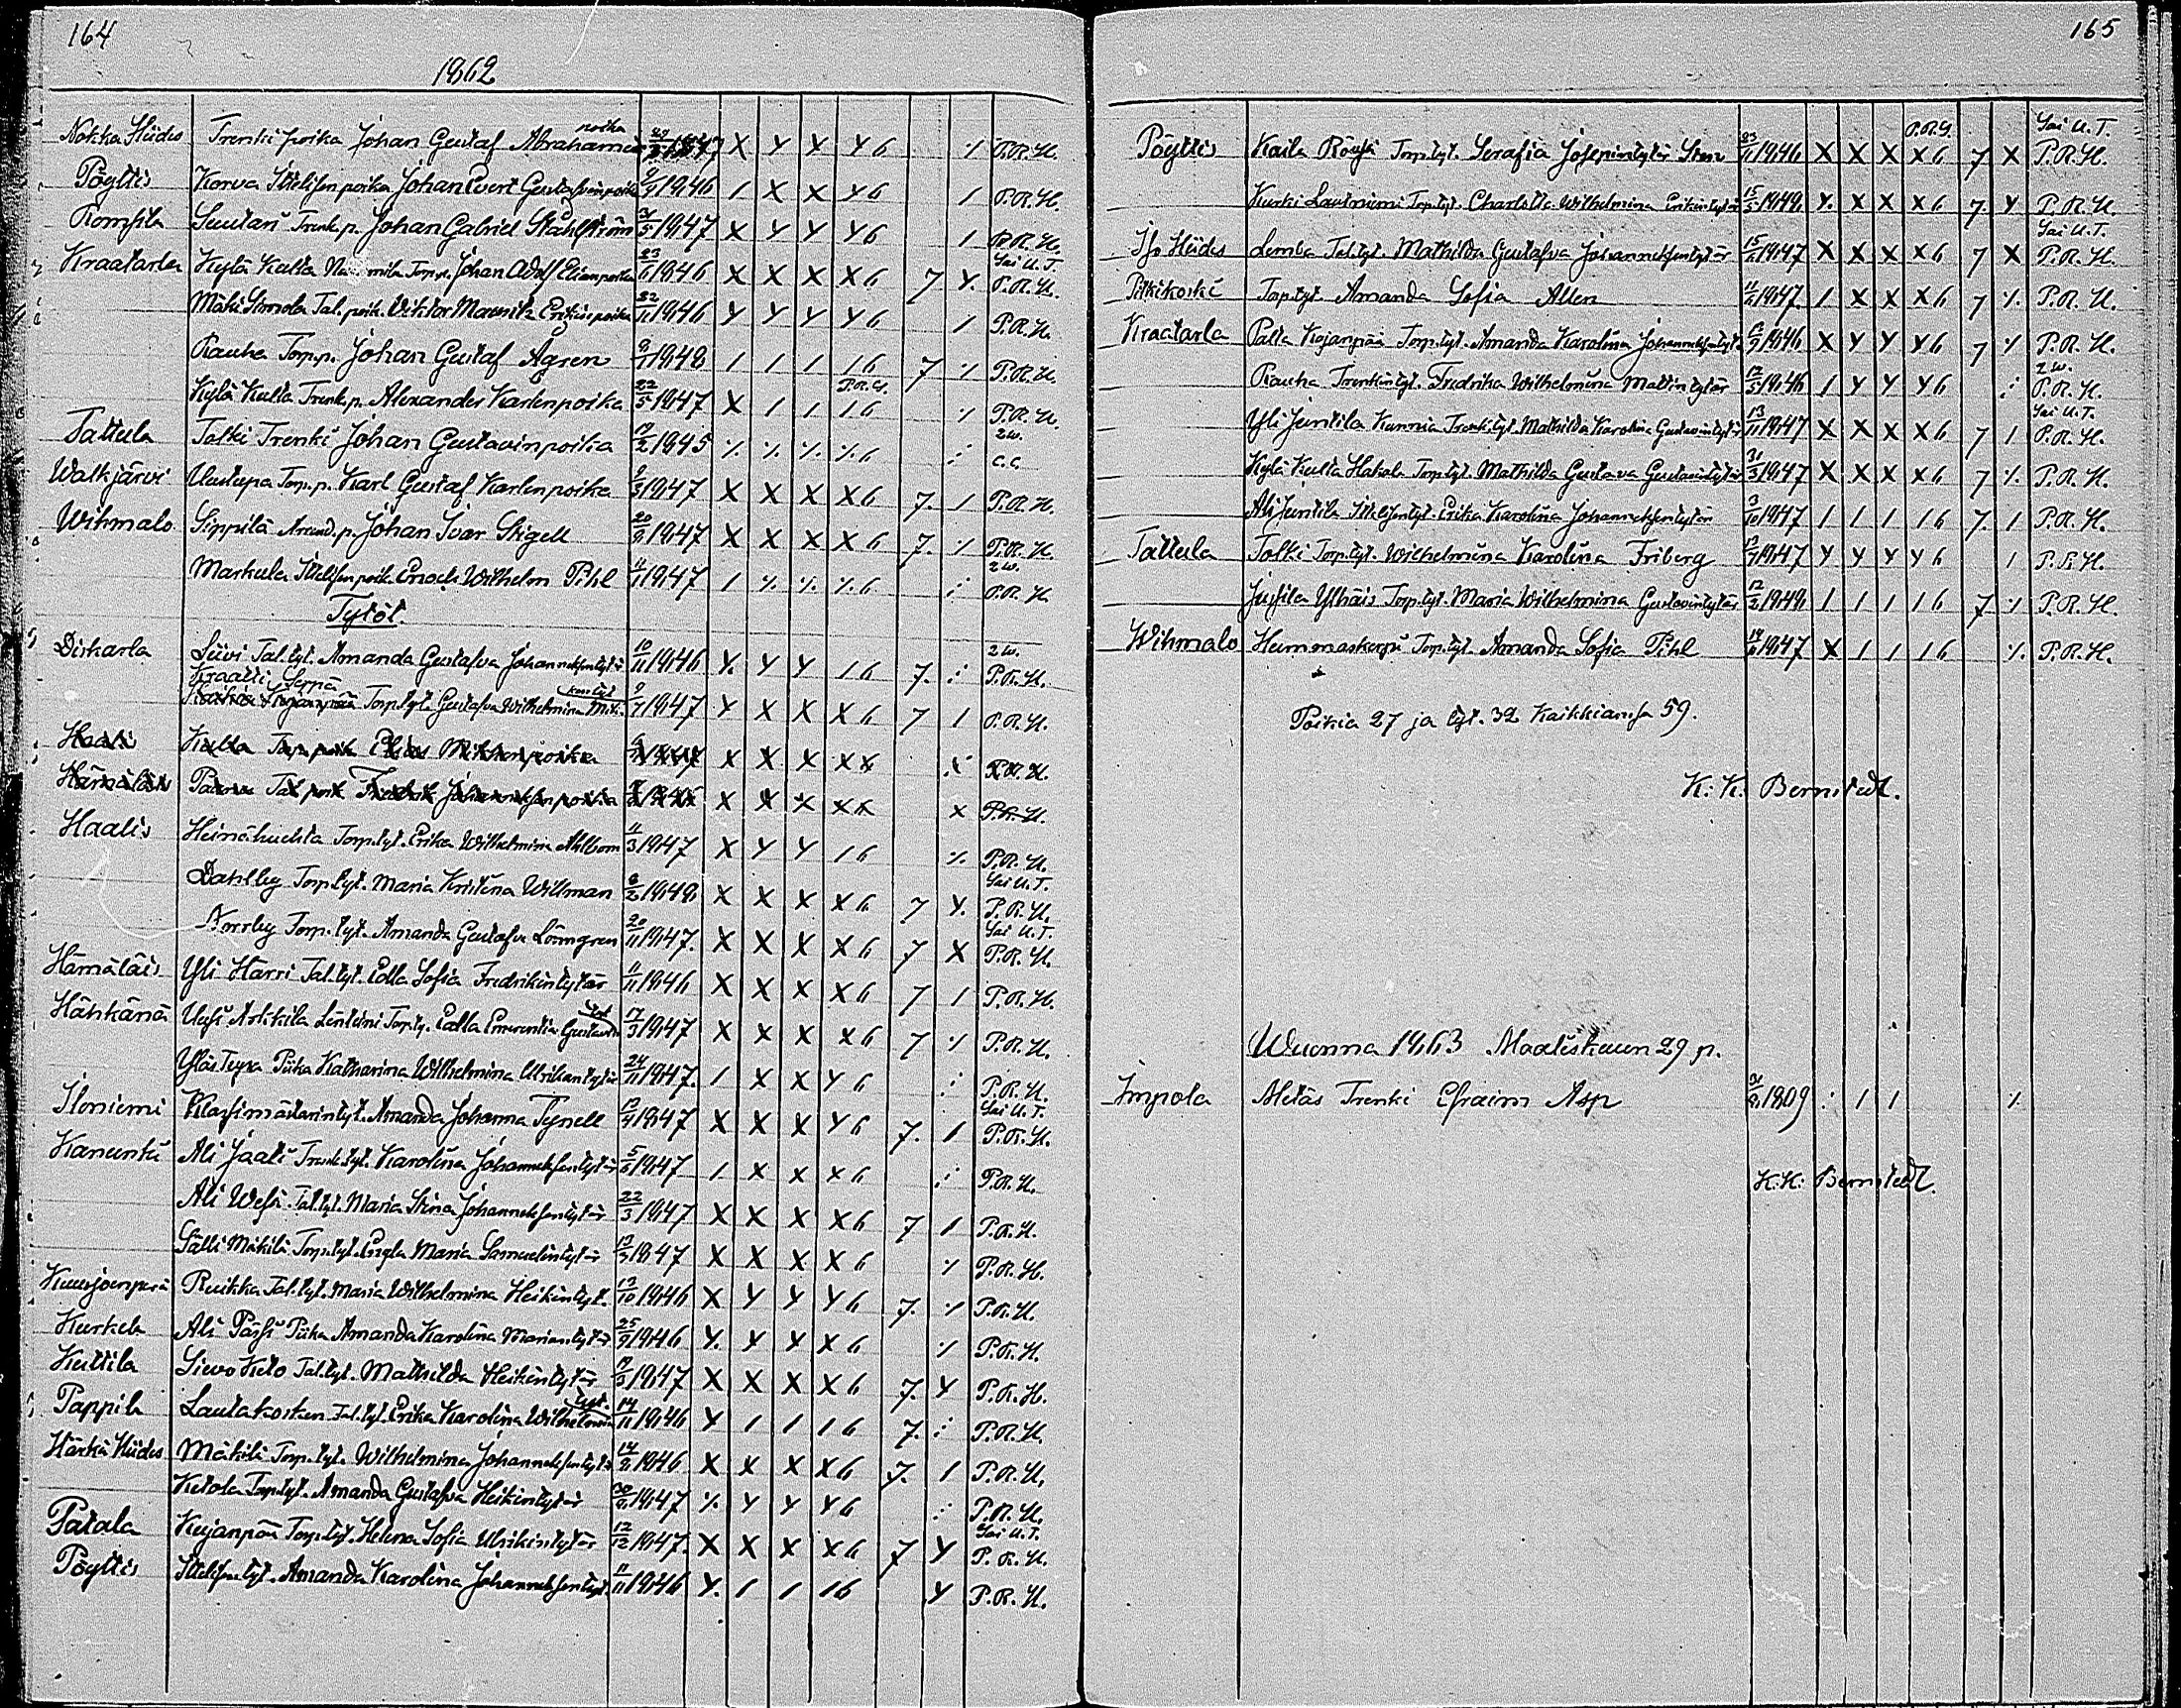 164
1862
Nokka Hiides Trenki poika Johan Gustaf Abrahamin poika X Y X Y 6 P.R.H.
Pöyttis Korva Itsellisen poika Johan Evert Gustafvinpoika 1846 1 X X Y6 1 P.R.H.
Romsila Suutari Trenk.p. Johan Gabriel Ståhlström 21/5 1847 X Y Y Y6 1 P.R.H.
Kraatarla Kylä Kulta Torp.p. Johan Adolf Elianpoika 23/6 1846 X X X X6 7 Y. Sai U.T. P.R.H.
Mäki Simola Tal. poik. Viktor Mauritz Erikinpoika 22/11 1846 Y Y Y Y6 1 P.R.H.
Rauha Torp.p. Johan Gustaf Ågren 1848 1 1 1 16 7 P.R.H.
Kylä Kulta Trenk.p. Alexander Karlenpoika 22/5 1847 X 1 1 16 P.R.H.
Tattula Tolki Trenki Johan Gustavinpoika 19/2 1845 2w. C.C.
Walkjärvi Uutupa Torp.p. Karl Gustaf Karlenpoika 1847 X X X X6 7. 1 P.R.H.
Wihmalo Sippilä Arend.p. Johan Ivar Stigell 20/2 1847 X X X X6 7. P.R.H.
Markula Itsellisen poik. Enoch Wilhelm Pihl 11/1 1847 2w. P.R.H.
Tytöt
Diskarla Liivi Tal.tyt. Amanda Gustafva Johanneksentytär 10/11 1846 Y. Y Y 16 7. 2w. P.R.H.
Kraatti Seppä
Torp.tyt. Gustafva Wilhelmina 9/7 1847 Y X X X6 7 1 P.R.H.
Haali Kulta Torp. poik. Elias Mikkenpoika X X X XX P.R.H.
Hämäläis Tal. poik. Fredrik Johanneksenpoika X X X XX X P.R.H.
Haalis Heinähuhta Torp.tyt. Erika Wilhelmina Ahlbom 11/3 1847 X Y Y 16 P.R.H.
Dahlby Torp.tyt. Maria Kristina Willman 8/2 1848 X X X X6 7 Y. Sai U.T. P.R.H.
Norrby Torp.tyt. Amanda Gustafva Lönngren 20/11 1847. X X X X6 7 X Sai U.T. P.R.H.
Hämäläis Yli Härri Tal.tyt. Edla Sofia Fredrikintytär 11/11 1846 X X X X6 7 1 P.R.H.
Hähkänä Uusi Anttila Torp.ty. Edla Emerentia Gustavin tyt. 17/3 1847 X X X X6 7 P.R.H.
Yläs Piika Katharina Wilhelmina Ulrikantytär 24/11 1847. 1 X X Y6 P.R.H.
Iloniemi Amanda Johanna Tynell 12/4 1847 X X X Y6 7. 1 Sai U.T. P.R.H.
Kanunki Ali Jaali Trenk.tyt. Karolina Johanneksentytär 5/6 1847 1 X X X6 P.R.H.
Ali Wessi Tal.tyt. Maria Stina Johanneksentytär 22/3 1847 X X X X6 7 1 P.R.H.
Sälli Mäkilä Torp.tyt. Engla Maria Samuelintytär 13/3 1847 X X X X6 P.R.H.
Kuusjoenperä Ruikka Tal.tyt. Maria Wilhelmina Heikintyt. 13/10 1846 X Y Y Y6 7. P.R.H.
Kurkela Ali Pässi Piika Amanda Karolina Mariantytär 25/9 1846 Y. Y X X6 P.R.H.
Kuttila Sievo Keto Tal.tyt. Mathilda Heikintytär 19/3 1847 X X X X6 7. Y P.R.H.
Pappila Lautakosken Tal.tyt. Erika Karolina Wilhelmin tyt. 14/11 1846 Y 1 1 16 7. P.R.H.
Härkä Hiides Mäkilä Torp.tyt. Wilhelmina Johanneksentytär 1846 X X X X6 7. 1 P.R.H.
Ketola Torp.tyt. Amanda Gustafva Heikintytär 1847 Y Y Y6 P.R.H.
Patala Kujanpää Torp.tyt. Helena Sofia Ulrikintytär 12/12 1847. X X X X6 7 Y Sai U.T. P.R.H.
Pöyttis Itsellisen tyt. Amanda Karolina Johanneksentyt. 11/11 1846 Y. 1 1 16 Y P.R.H.
165
Pöyttis Kaila Röyhä Torp.tyt. Serafia Josefintytär Sten 23/11 1846 X X X X6 7 X Sai U.T. P.R.H.
Kurki Lautniemi Torp.tyt. Charlotta Wilhelmina Erikintytär 15/5 1848. Y. X X X6 7. Y P.R.H.
Iso Hiides Lemba Tal.tyt. Mathilda Gustafva Johanneksentytär 1847 X X X X6 7 X Sai U.T. P.R.H.
Pitkäkoski Torp.tyt. Amanda Sofia Allen 1847. 1 X X X6 7 P.R.H.
Kraatarla Palta Kojanpää Torp.tyt. Amanda Karolina Johanneksentyt. 1846 X Y Y Y6 7 P.R.H.
Rauha Trenkintyt. Fredrika Wilhelmina Mattintytär 12/5 1846 1 Y Y Y6 2w. P.R.H.
Yli Juntila Kunnia Trenk.tyt. Mathilda Karolina Gustavintytär 13/11 1847 X X X X6 7 1 Sai U.T. P.R.H.
Kylä Kulta Hakala Torp.tyt. Mathilda Gustava Gustavintytär 31/3 1847 X X X X6 7 P.R.H.
Ali Juntila Itsellisentyt. Erika Karolina Johanneksentytär 3/10 1847 1 1 1 16 7. 1 P.R.H.
Tattula Tolki Torp.tyt. Wilhelmina Karolina Friberg 1847 Y Y Y Y6 1 P.R.H.
Jussila Ylhäis Torp.tyt. Maria Wilhelmina Gustavintytär 12/2 1848 1 1 1 16 7 P.R.H.
Wihmalo Hammaskorpi Torp.tyt. Amanda Sofia Pihl 1847 X 1 1 16 P.R.H.
Poikia 27 ja tyt. 32 Kaikkiansa 59.
K.K. Bernstedt.
Wuonna 1863 Maaliskuun 29 p.
Impola Aletäs Trenki Efraim Asp 1809 1 1
K.K. Bernstedt.